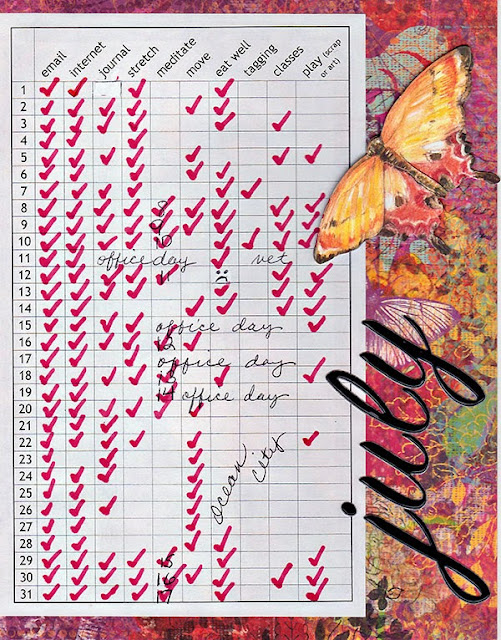 email internet journal stretch meditate move eat well tagging classes play (scrap or art)
1
2
3
4
5
6
7
8
9
10
11 office day vet
12
13
14
15 office day
16 12
17 office day
18 13
19 14 office day
20
21
22
23
24 ocean city
25
26
27
28
29
30
31
july